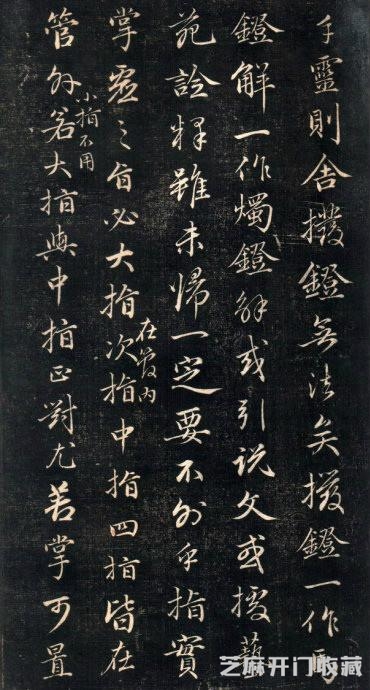 靈則舍撥鐙無法矣撥鐙一作馬
鐙解一作燭鐙解或引說文或援藝
苑詮釋雖未歸一定要不外乎指實
在管内
掌虛之旨必大指次指中指四指皆在
小指不用
管外若大指與中指正對尤善掌可置
芝麻开门收藏